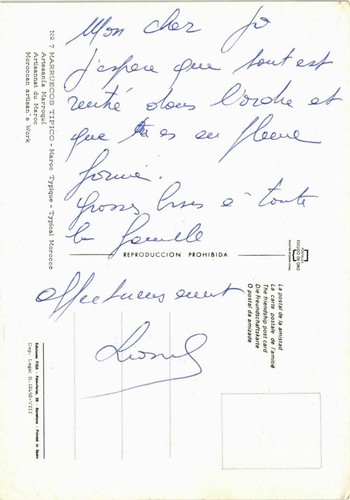 Mon cher Jo
j'espère que tout est
rentré dans l'ordre et
que tu es en pleine
forme.
Grosses bises à toute
la famille
affectueusement
Lionel
Nº 7 MARRUECOS TIPICO - Maroc Typique - Typical Morocco
Artesanía Marroquí
Artisanat du Maroc
Moroccan artisan's Work
REPRODUCCION PROHIBIDA
ESCUDO DE ORO
La postal de la amistad
La carte postale de l'amitié
The friendship post card
Die freundschaftskarte
O postal da amizade
Ediciones FISA - Palaudarias, 26 - Barcelona - Printed in Spain